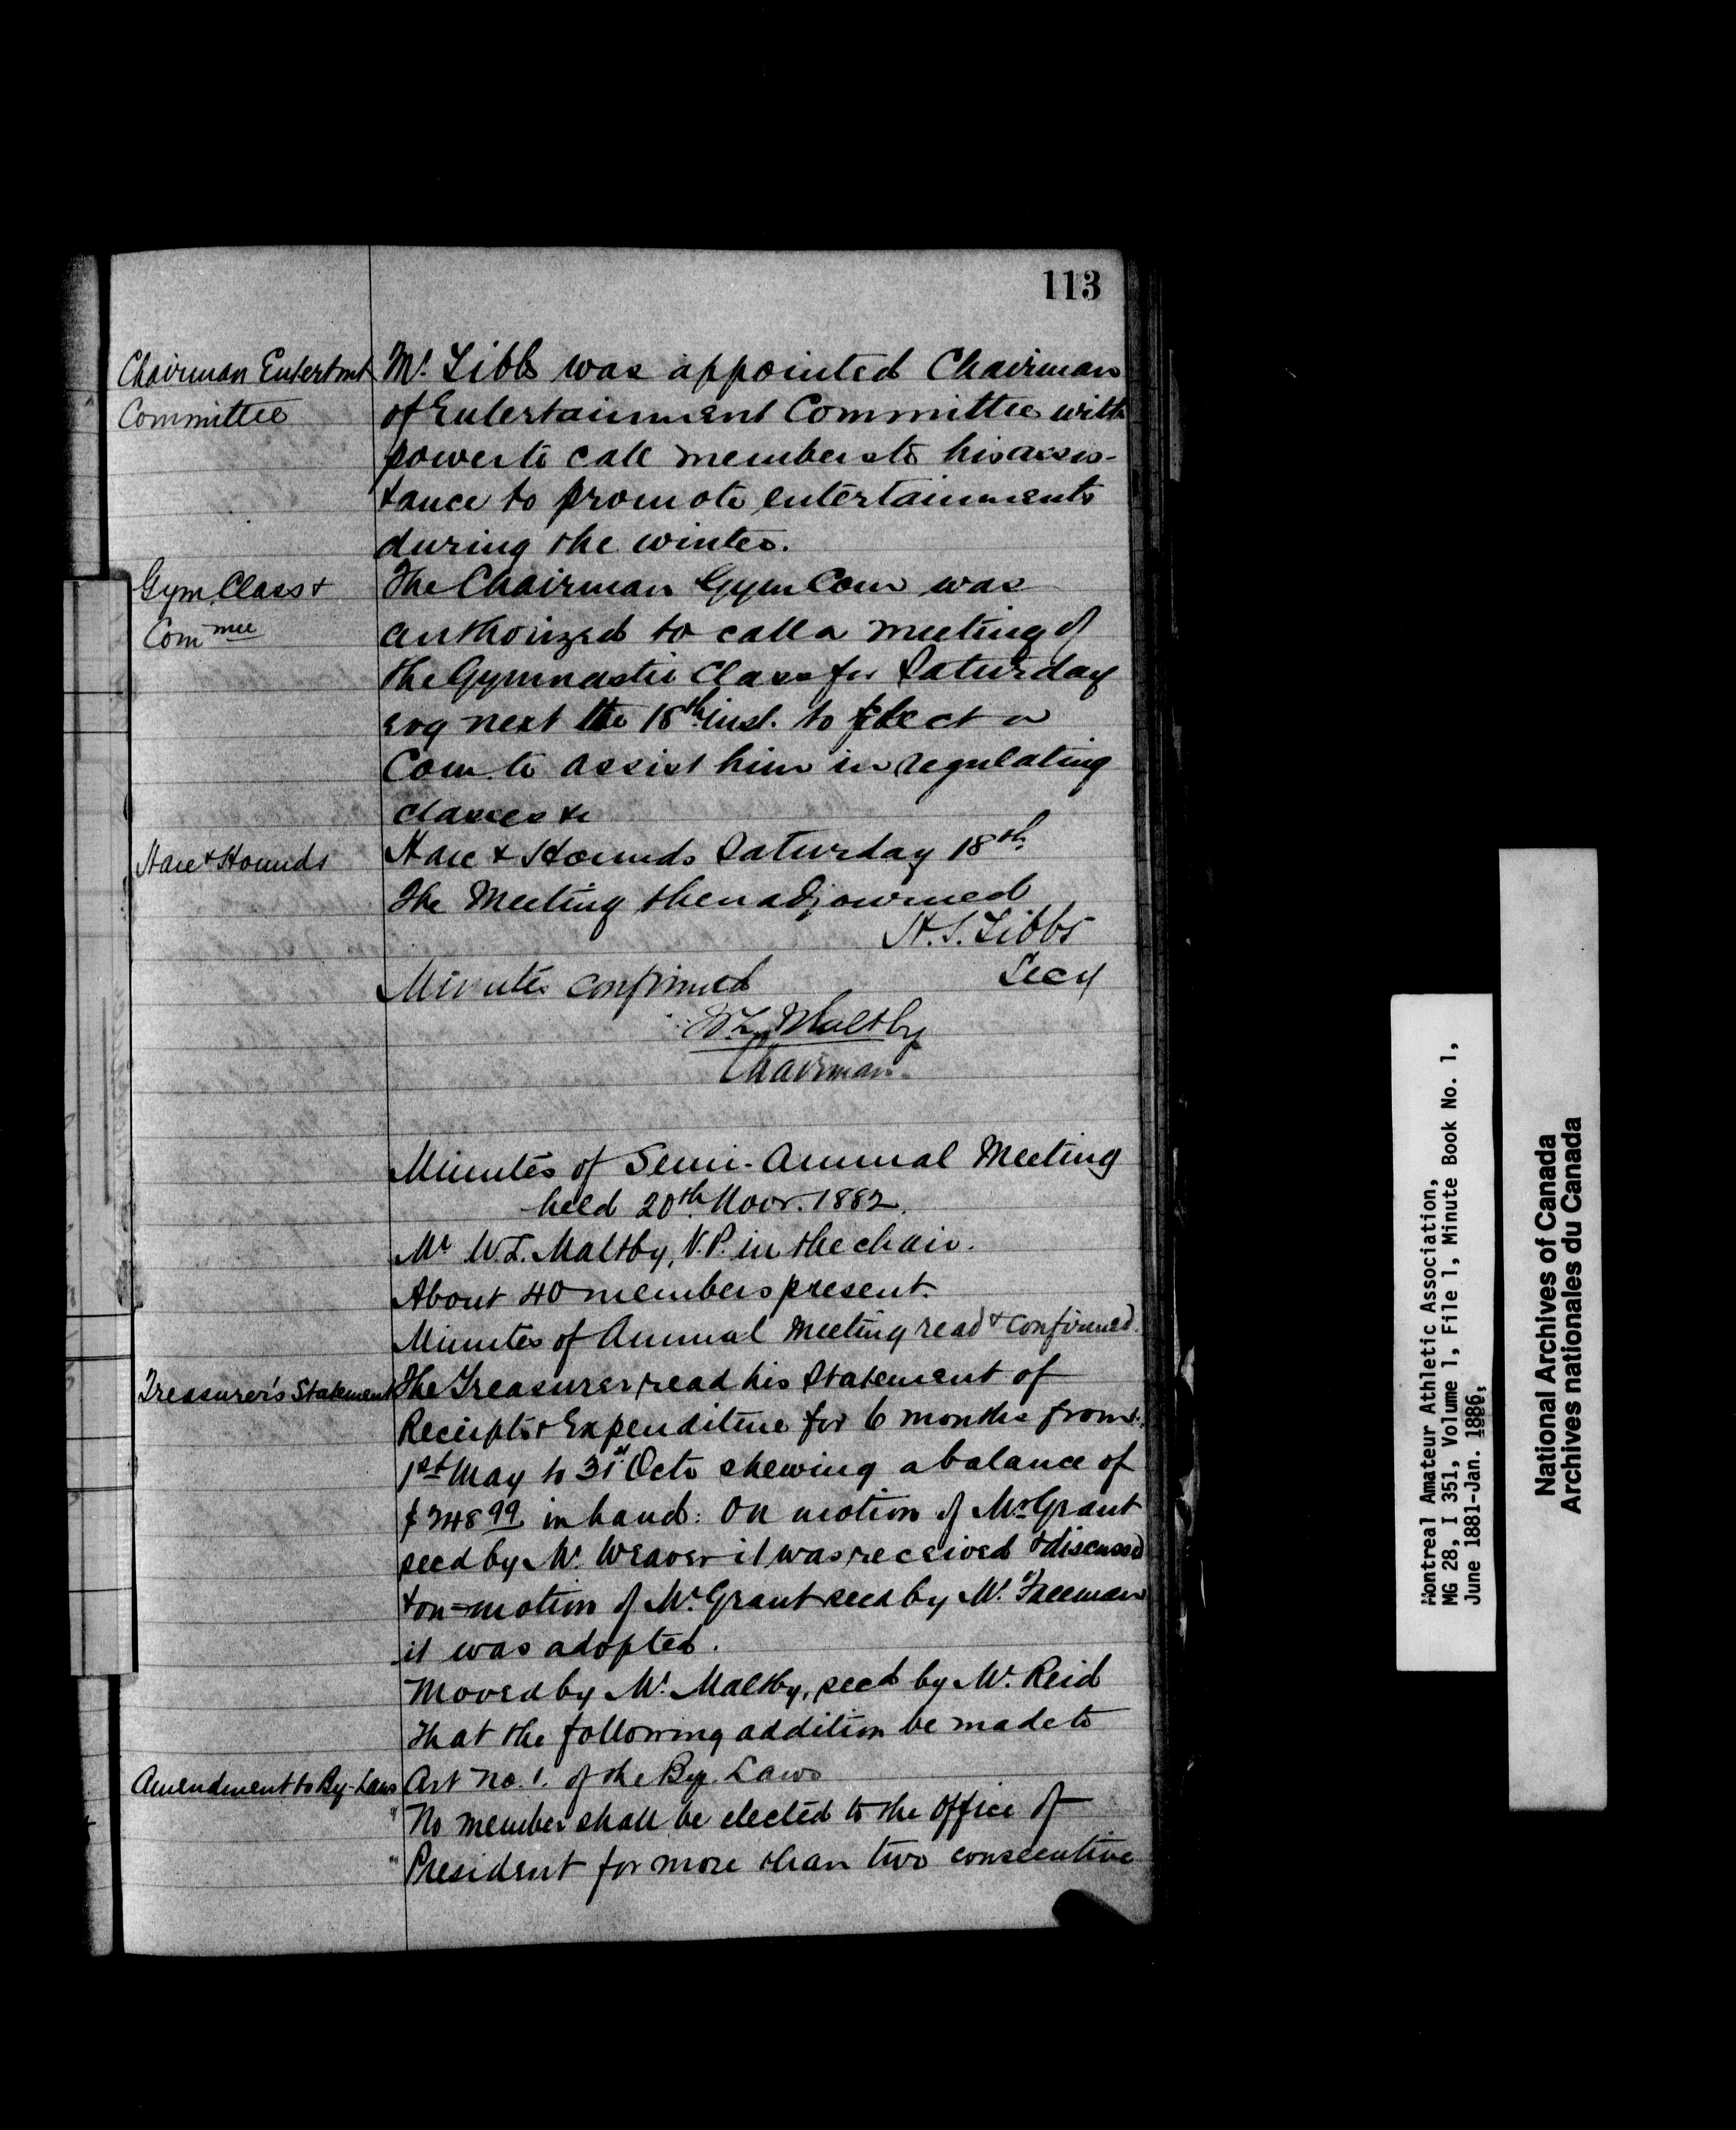 113
Chairman Entertmt
Committee
Mr. Tibbs was appointed Chairman
of Entertainment Committee with
power to call members to his assis-
tance to promote entertainments
during the winter.
Gym. Class &
Commee
The Chairman Gym Com was
authorized to call a meeting of
the Gymnastic Class for Saturday
evg next the 18th inst. to elect a
Com. to assist him in regulating
classes &c
Hare & Hounds
Hare & Hounds Saturday 18th
The Meeting then adjourned
H. S. Tibbs
Secy
Minutes confirmed
W L Maltby
Chairman
Minutes of Semi-Annual Meeting
held 20th Novr. 1882.
Mr W. L. Maltby, V.P. in the chair.
About 40 members present.
Minutes of Annual Meeting read & confirmed.
Treasurer's Statement
The Treasurer read his Statement of
Receipts & Expenditure for 6 months from
1st May to 31st Octo shewing a balance of
$748 99 in hand: On motion of Mr Grant
secd by Mr. Weaver it was received & discussed
& on motion of Mr. Grant secd by Mr. Freeman
it was adopted.
Moved by Mr. Maltby, secd by Mr. Reid
that the following addition be made to
Amendment to By-Laws
Art No. 1. of the By. Laws
"No member shall be elected to the office of
"President for more than two consecutive
Montreal Amateur Athletic Association,
MG 28, I 351, Volume 1, File 1, Minute Book No. 1,
June 1881-Jan. 1886,
National Archives of Canada
Archives nationales du Canada